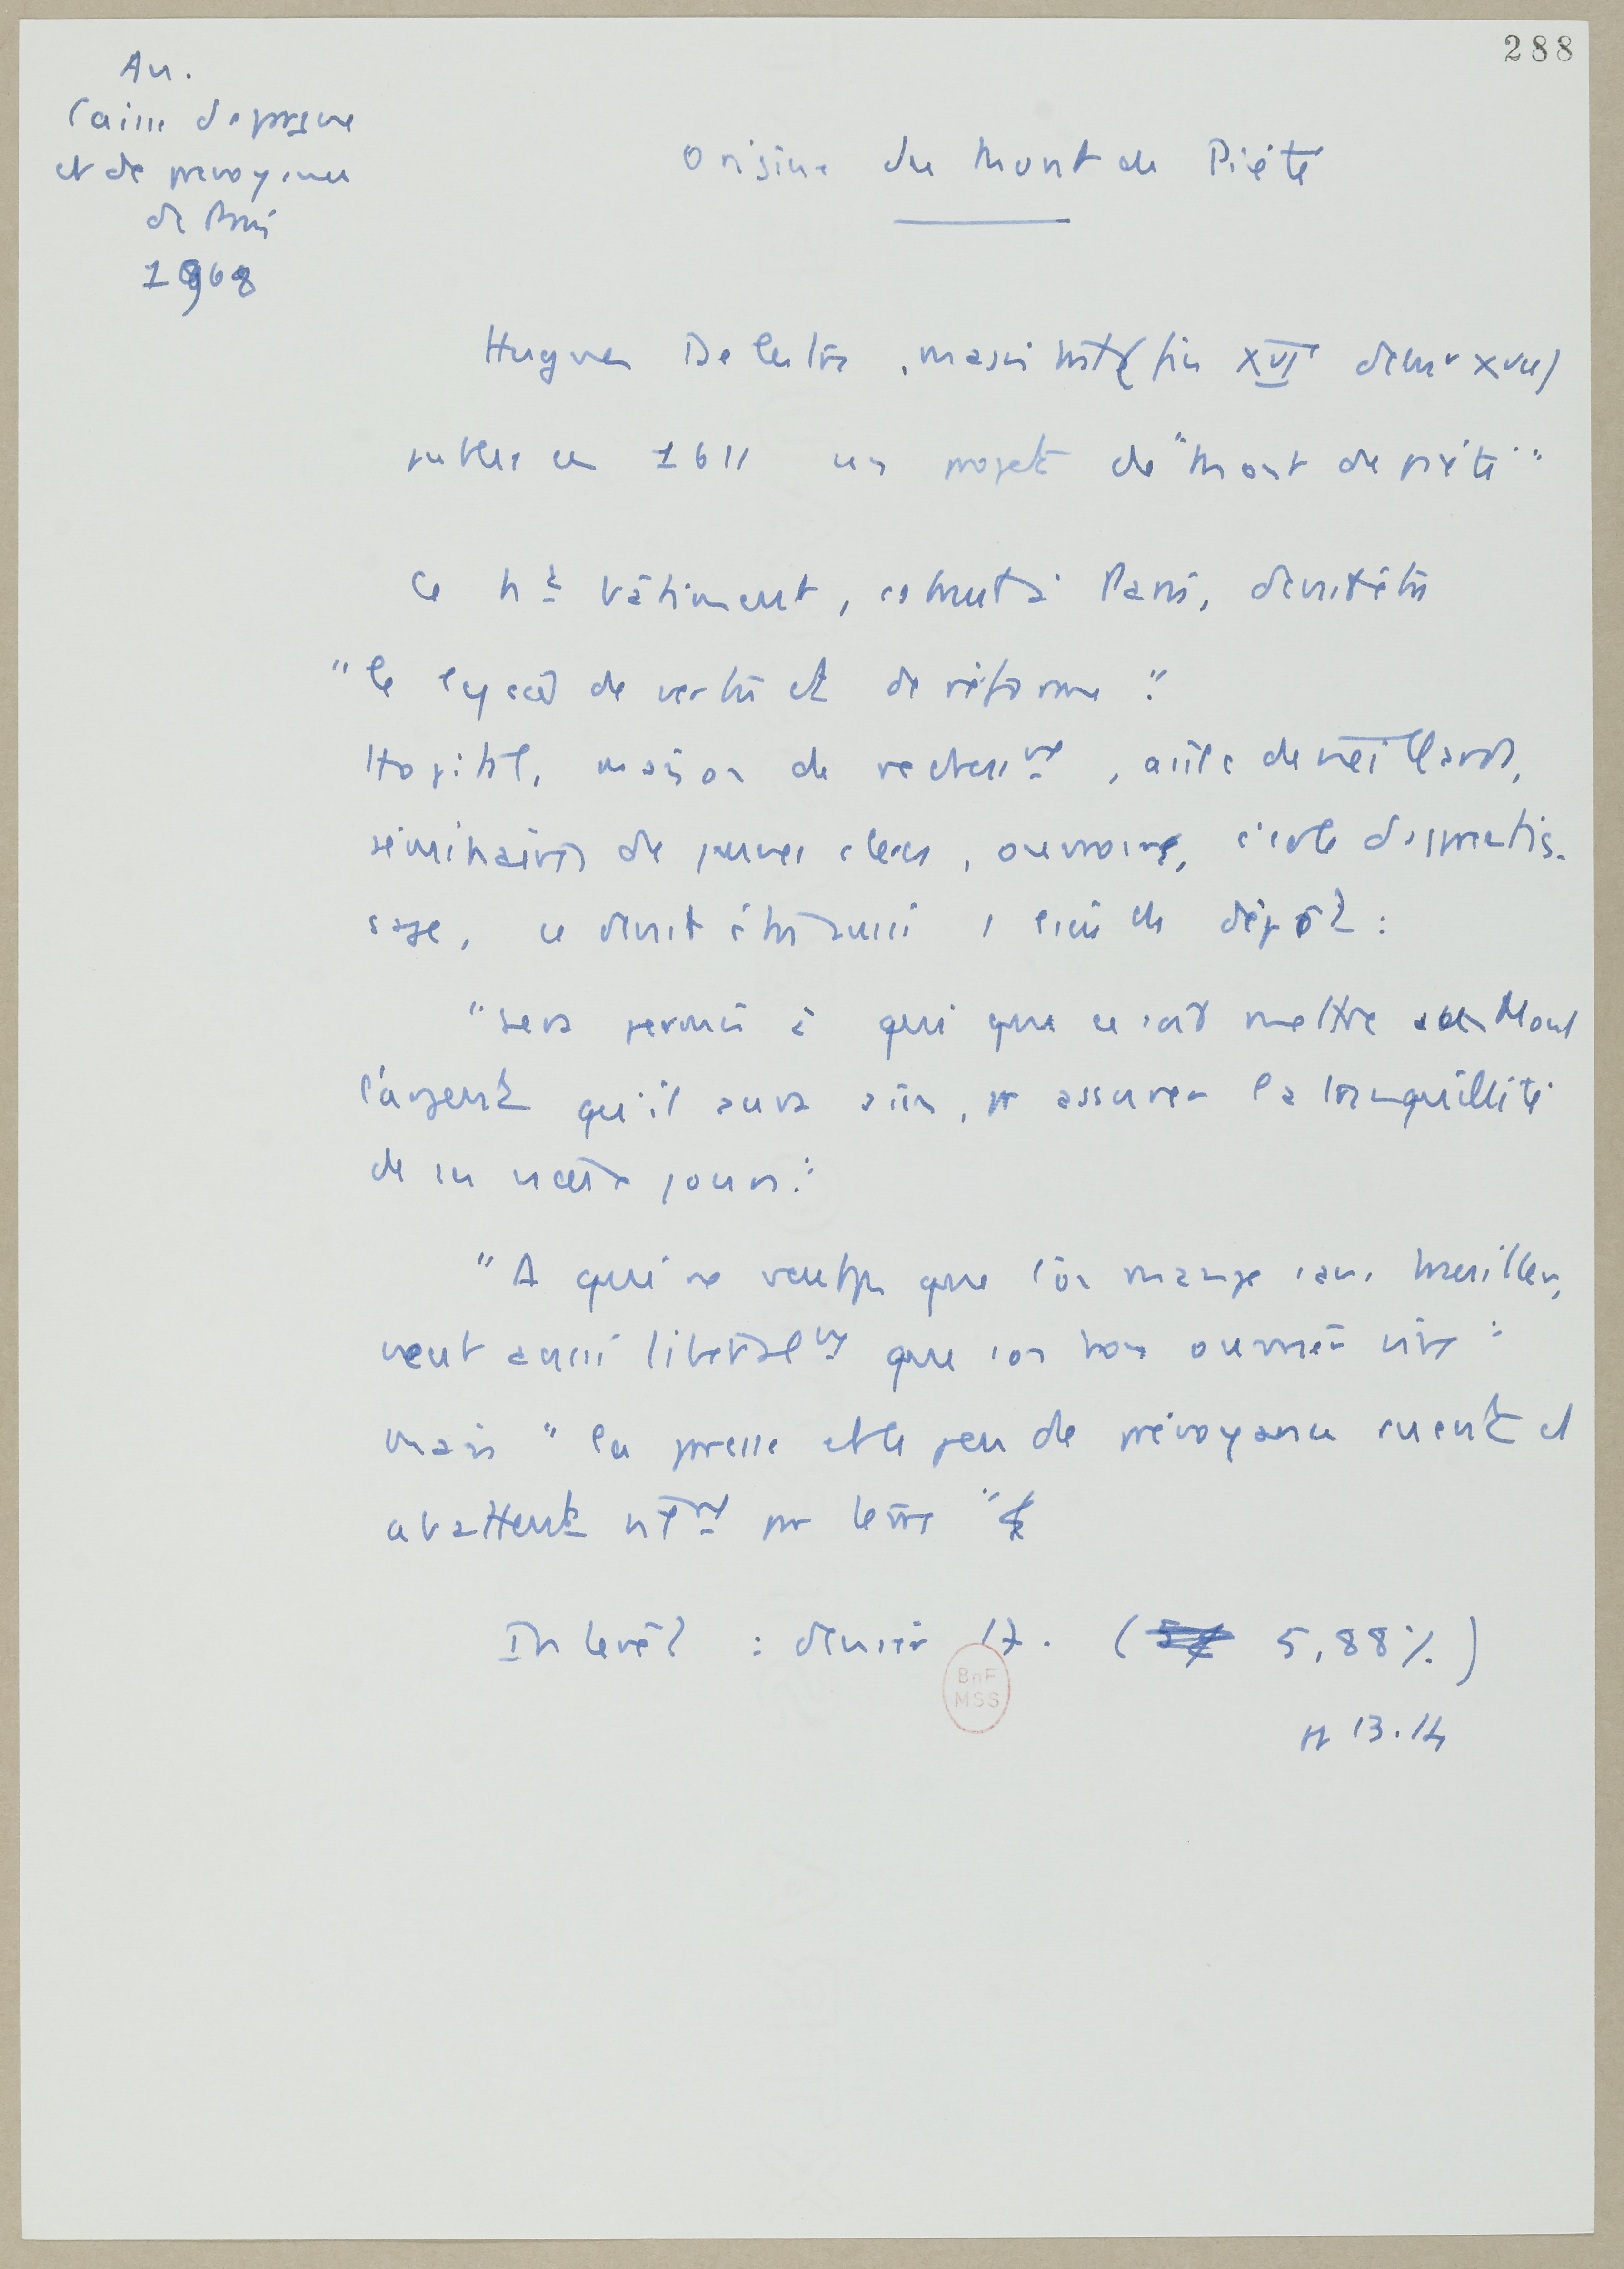 288
An.
Caisse d'epargne
et de prevoyance
de Paris
1968
Origine du Mont de Piété
Hugues Delestre, magistrat (fin XVI debut XVII)
publie en 1611 un projet de "Mont de piété"
Ce bâtiment, construit à Paris, devrait être
"le lycée de vertu et de réforme".
Hopital, maison de redressemt, asile de vieillards,
séminaires de jeunes clercs, ouvroirs, école d'apprentis-
sage, ce devrait être aussi 1 lieu de dépôt :
"sera permis à qui que ce soit mettre au Mont
l'argent qu'il aura, assurer la tranquillité
de ses vieux jours."
"A qui ne veut pas que l'on mange sans travailler,
veut aussi liberalmt que son bon ouvrier vive :
mais "la presse et le peu de prévoyance tuent et
abattent par terre"
Interêt : denier 17. ( 5,88 % )
pp 13.14
BnF
MSS